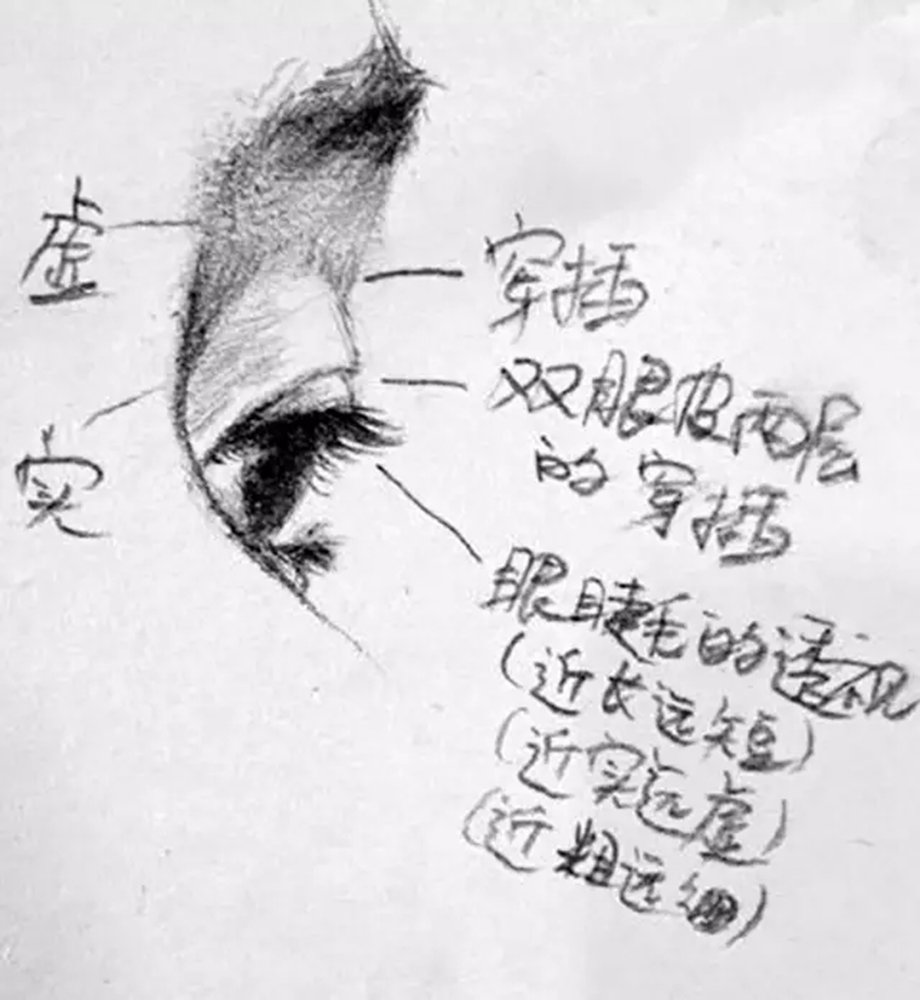 虚
穿插
双眼皮两层
的穿插
实
眼睫毛的透视
(近长远短)
(近实远虚)
(近粗远细)